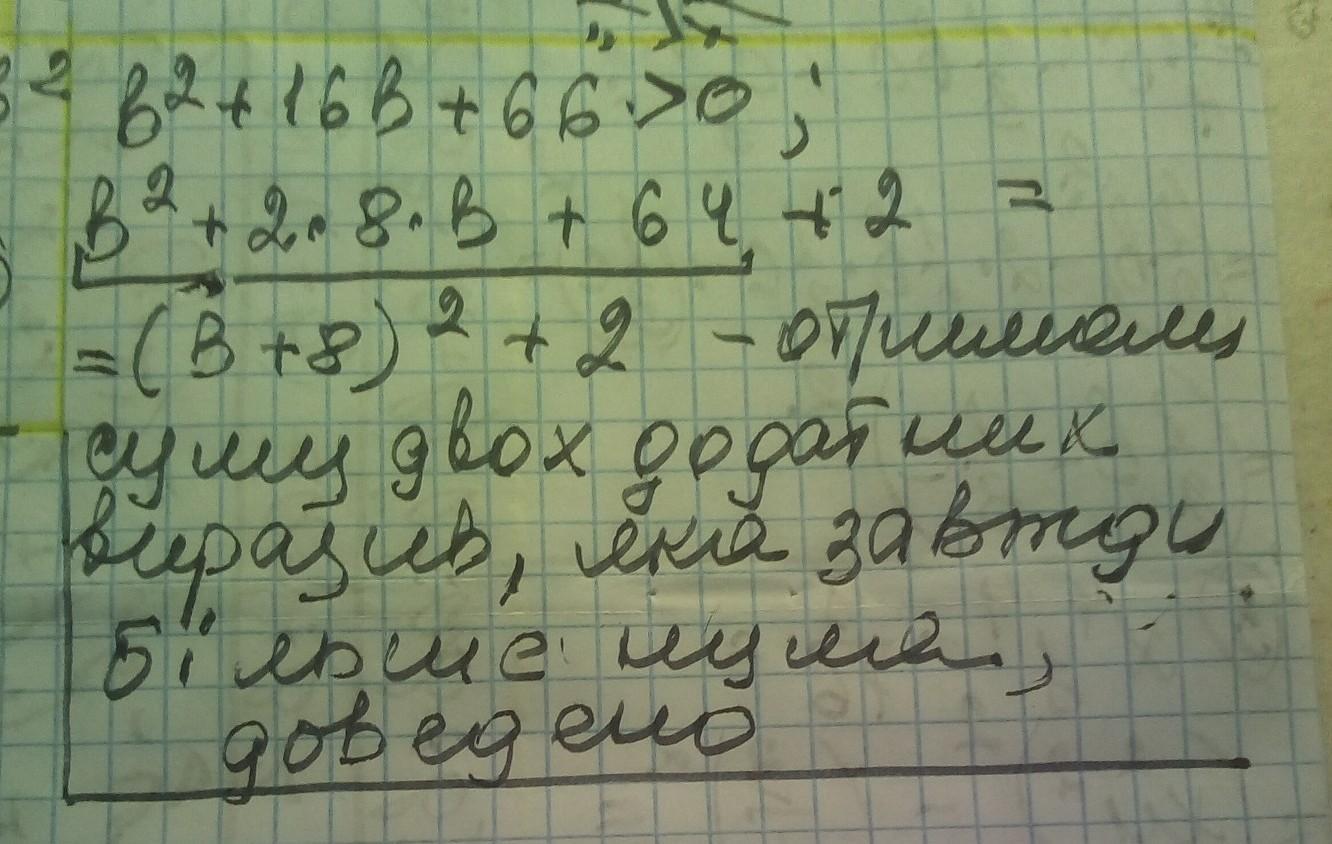 в² + 16в + 66 > 0 ;
в² + 2·8·в + 64 + 2 =
= (в + 8)² + 2 - отримали
суму двох додатних
виразів, яка завжди
більше нуля,
доведено